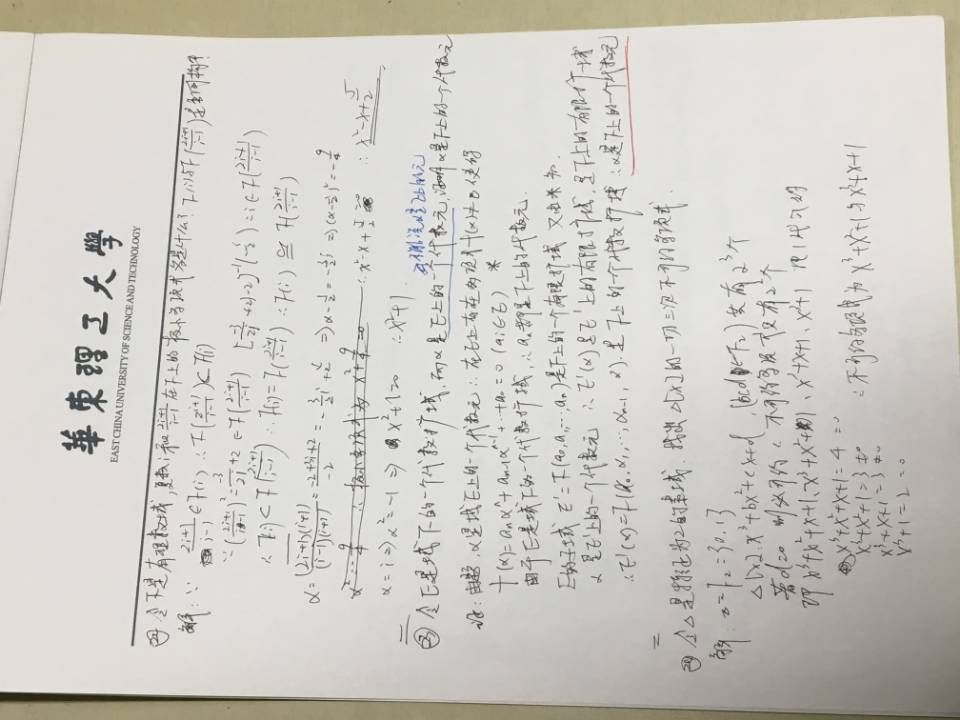 華東理工大學
EAST CHINA UNIVERSITY OF SCIENCE AND TECHNOLOGY
令F是有理数域,复数i和 (2i+1)/(i-1) 在F上的极小多项式各是什么? F(i)与F((2i+1)/(i-1))是否同构?
解: ∵ (2i+1)/(i-1) ∈ F(i) ∴ F((2i+1)/(i-1)) ⊂ F(i)
∵ ((2i+1)/(i-1))² = -3/2i + 2 ∈ F((2i+1)/(i-1)) [(-3/2i + 2)-2]⁻¹(-i/2) = i ∈ F((2i+1)/(i-1))
∴ F(i) ⊂ F((2i+1)/(i-1)) ∴ F(i) = F((2i+1)/(i-1)) ∴ F(i) ≅ F((2i+1)/(i-1))
α = (2i+1)(i+1)/(i-1)(i+1) = (-2+3i+2)/-2 = -3/2 i + 1/2 ⇒ α - 1/2 = -3/2 i ⇒ (α-1/2)² = -9/4
∴ x²-x+5/2 ∴ x²-x+5/2
α = i ⇒ α² = -1 ⇒ x²+1=0 ∴ x²+1.
令E是域F的一个代数扩域,而α是E上的一个代数元,证明α是F上的一个代数元
证: 由题,α是域E上的一个代数元 ∴ 在E上存在多项式f(x)≠0使得
f(α) = aₙαⁿ + aₙ₋₁αⁿ⁻¹ + ··· + a₀ = 0 (aᵢ∈E) *
由于E是域F的一个代数扩域, ∴ aₙ都是F上的代数元.
E的子域 E' = F(a₀,a₁,···,aₙ) 是F上的一个有限扩域 又由*知
α是E'上的一个代数元 ∴ E'(α) 是E'上的有限扩域, 是F上的有限扩域
∴ E'(α) = F(a₀,α₁,···,αₙ₋₁,α) 是F上的一个代数扩域 ∴ α是F上的一个代数元
令Δ是特征为2的素域. 找出Δ[x]的一切三次不可约多项式.
解: Δ = F₂ = {0,1}
Δ[x]: x³+bx²+cx+d, (bcd ∈ F₂) 共有2³个
若d=0 则必可约 ∴ 不可约多项式只有2²个
即 x³+x²+x+1、x³+x²+1、x³+x+1、x³+1 把1代入得
x³+x²+x+1 = 4 =0
x³+x²+1 = 3 ≠0
x³+x+1 = 3 ≠0
x³+1 = 2 =0
∴ 不可约多项式为 x³+x²+1与x³+x+1